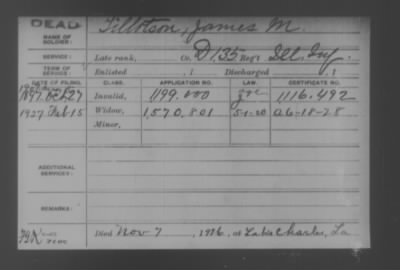 DEAD
NAME OF SOLDIER: Tillotson, James M.
SERVICE: Late rank, Co. D, 135 Reg't Ill. Inf.
TERM OF SERVICE: Enlisted , 1 Discharged , 1
DATE OF FILING. CLASS. APPLICATION NO. LAW. CERTIFICATE NO.
1897 Oct 27 Invalid, 1199.000 1116.492
1927 Feb 15 Widow, 1,570,801 5-1-20 A 6-18-28
Minor,
ADDITIONAL SERVICES:
REMARKS:
Died Nov 7, 1926, at Lake Charles, La